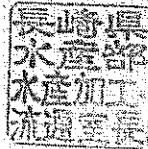 長崎県
水産部
水産加工
流通室長